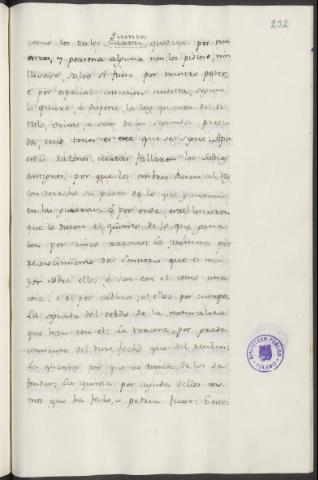 232
quintos
como los tales quedasen por nu
estros, y persona alguna non los pidiese, nin
llevase, salvo si fuese por nuestro poder
e por especial concesion nuestra, segun
lo quiere, e dispone la ley quinta del ti
tulo, veinte e seis de la segunda parti
da, cuio tenor es este que se sigue:
razones fallaron los sabios
antiguos, por que los ombres diesen al Rey
con derecho su parte de lo que ganasen
en las guerras
que le diesen el quinto de lo que gana
sen por cinco razones: la primera por
reconocimiento de Sennorio que es ma
yor sobre ellos, e son con el como una
cosa: e el por cabeza, e ellos por cuerpo:
La segunda del debdo de la naturaleza
que han con el: La tercera, por grade
cimiento del bien fecho que del reciben:
La quarta por que es tenudo de los de
fender; La quinta por ayuda dellos mis
mos que ha fecho, o podria facer:
BIBLIOTECA PUBLICA
TOLEDO